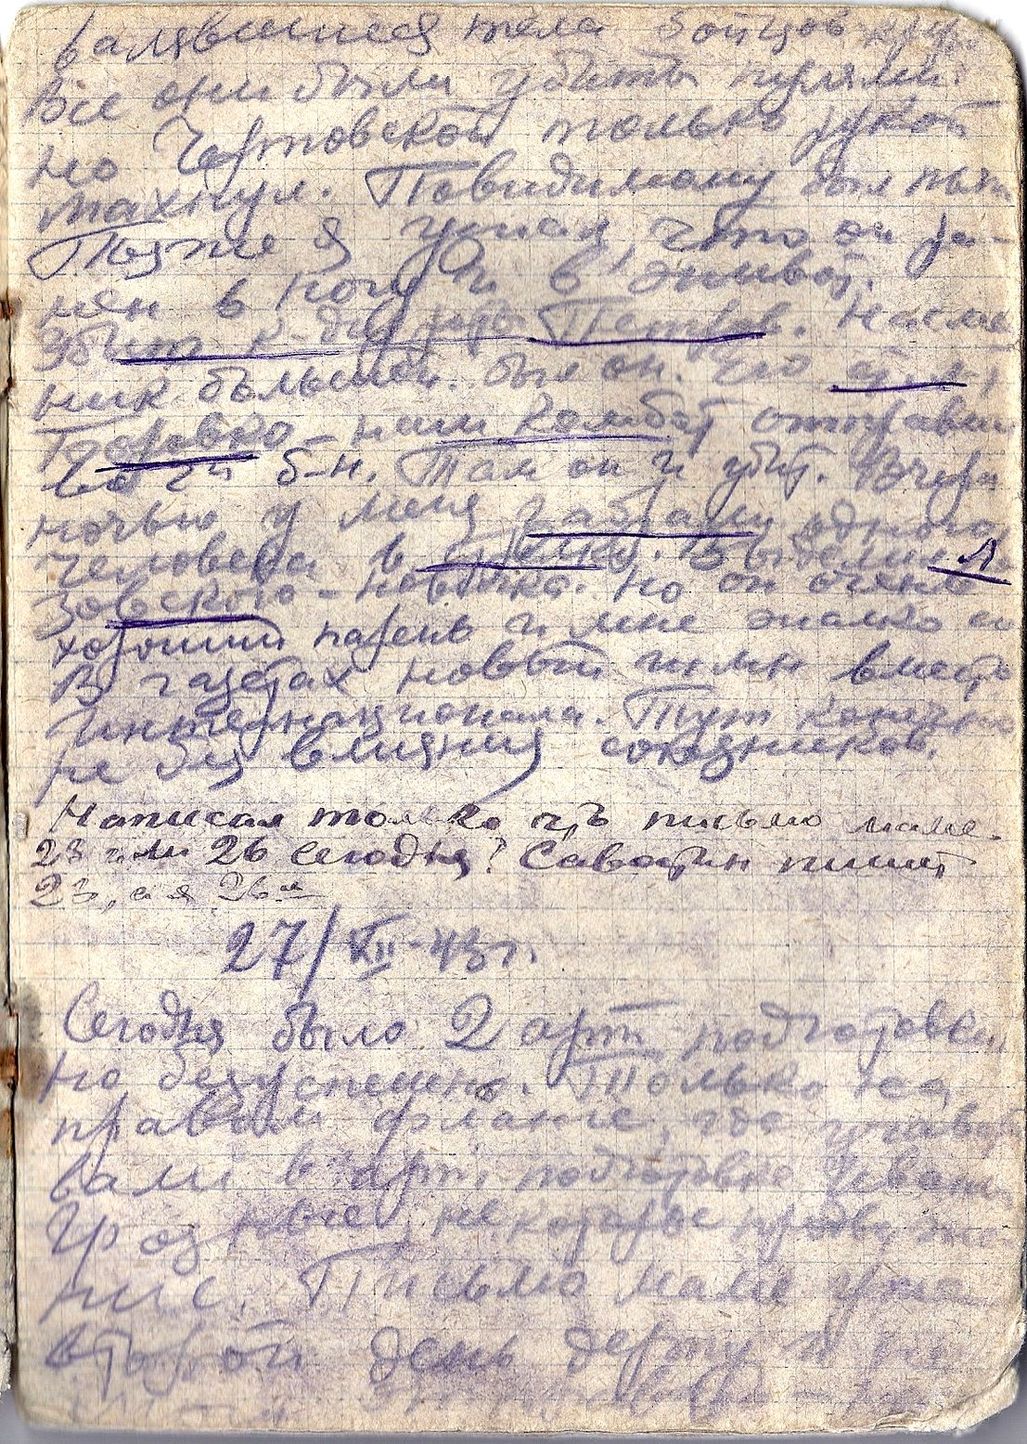 валявшиеся тела бойцов
Все они были убиты пулями.
но Чертовской только рукой
махнул. Повидимому был пьян
Позже я узнал, что он ра-
нен в ногу и в живот.
Убит к-др роты Петров.
ник большой был он. Его
наш комбат отправил
во 2й б-н. Там он и убит. Вчера
ночью у меня забрали одного
человека в
зовского - новичка. Но он очень
хороший парень и мне жалко его
В газетах новый гимн вместо
Интернационала. Тут конечно
не без влияния союзников.
Написал только что письмо маме.
23 или 26 сегодня? Саватин пишет
23, а я 26ы
27/XII-43г.
Сегодня было 2 арт подготовки
но безуспешно. Только на
правом фланге, где участво-
вали в арт подготовке Иваны
Грозные, некоторое продвиже-
ние. Письмо маме уже
второй день держу